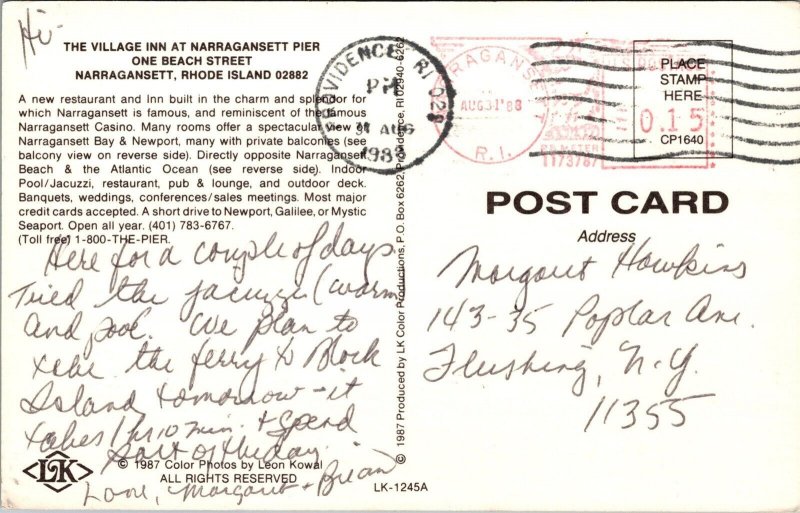 Hi-
THE VILLAGE INN AT NARRAGANSETT PIER
ONE BEACH STREET
NARRAGANSETT, RHODE ISLAND 02882
A new restaurant and Inn built in the charm and splendor for
which Narragansett is famous, and reminiscent of the famous
Narragansett Casino. Many rooms offer a spectacular view of
Narragansett Bay & Newport, many with private balconies (see
balcony view on reverse side). Directly opposite Narragansett
Beach & the Atlantic Ocean (see reverse side). Indoor
Pool/Jacuzzi, restaurant, pub & lounge, and outdoor deck.
Banquets, weddings, conferences/sales meetings. Most major
credit cards accepted. A short drive to Newport, Galilee, or Mystic
Seaport. Open all year. (401) 783-6767.
(Toll free) 1-800-THE-PIER.
Here for a couple of days.
Tried the jacuzzi (warm)
and pool. We plan to
take the ferry to Block
Island tomorrow - it
takes 1 hr 10 min. + spend
part of the day.
Love, Margaret + Brian
LK
© 1987 Color Photos by Leon Kowal
ALL RIGHTS RESERVED
LK-1245A
© 1987 Produced by LK Color Productions, P.O. Box 6262, Providence, RI 02940-6262
PROVIDENCE, RI 028
PM
31 AUG
1988
NARRAGANSETT
AUG31'88
R.I.
U.S. POSTAGE
0.15
PB METER
PLACE
STAMP
HERE
CP1640
POST CARD
Address
Margaret Hawkins
143-35 Poplar Ave.
Flushing, N.Y.
11355